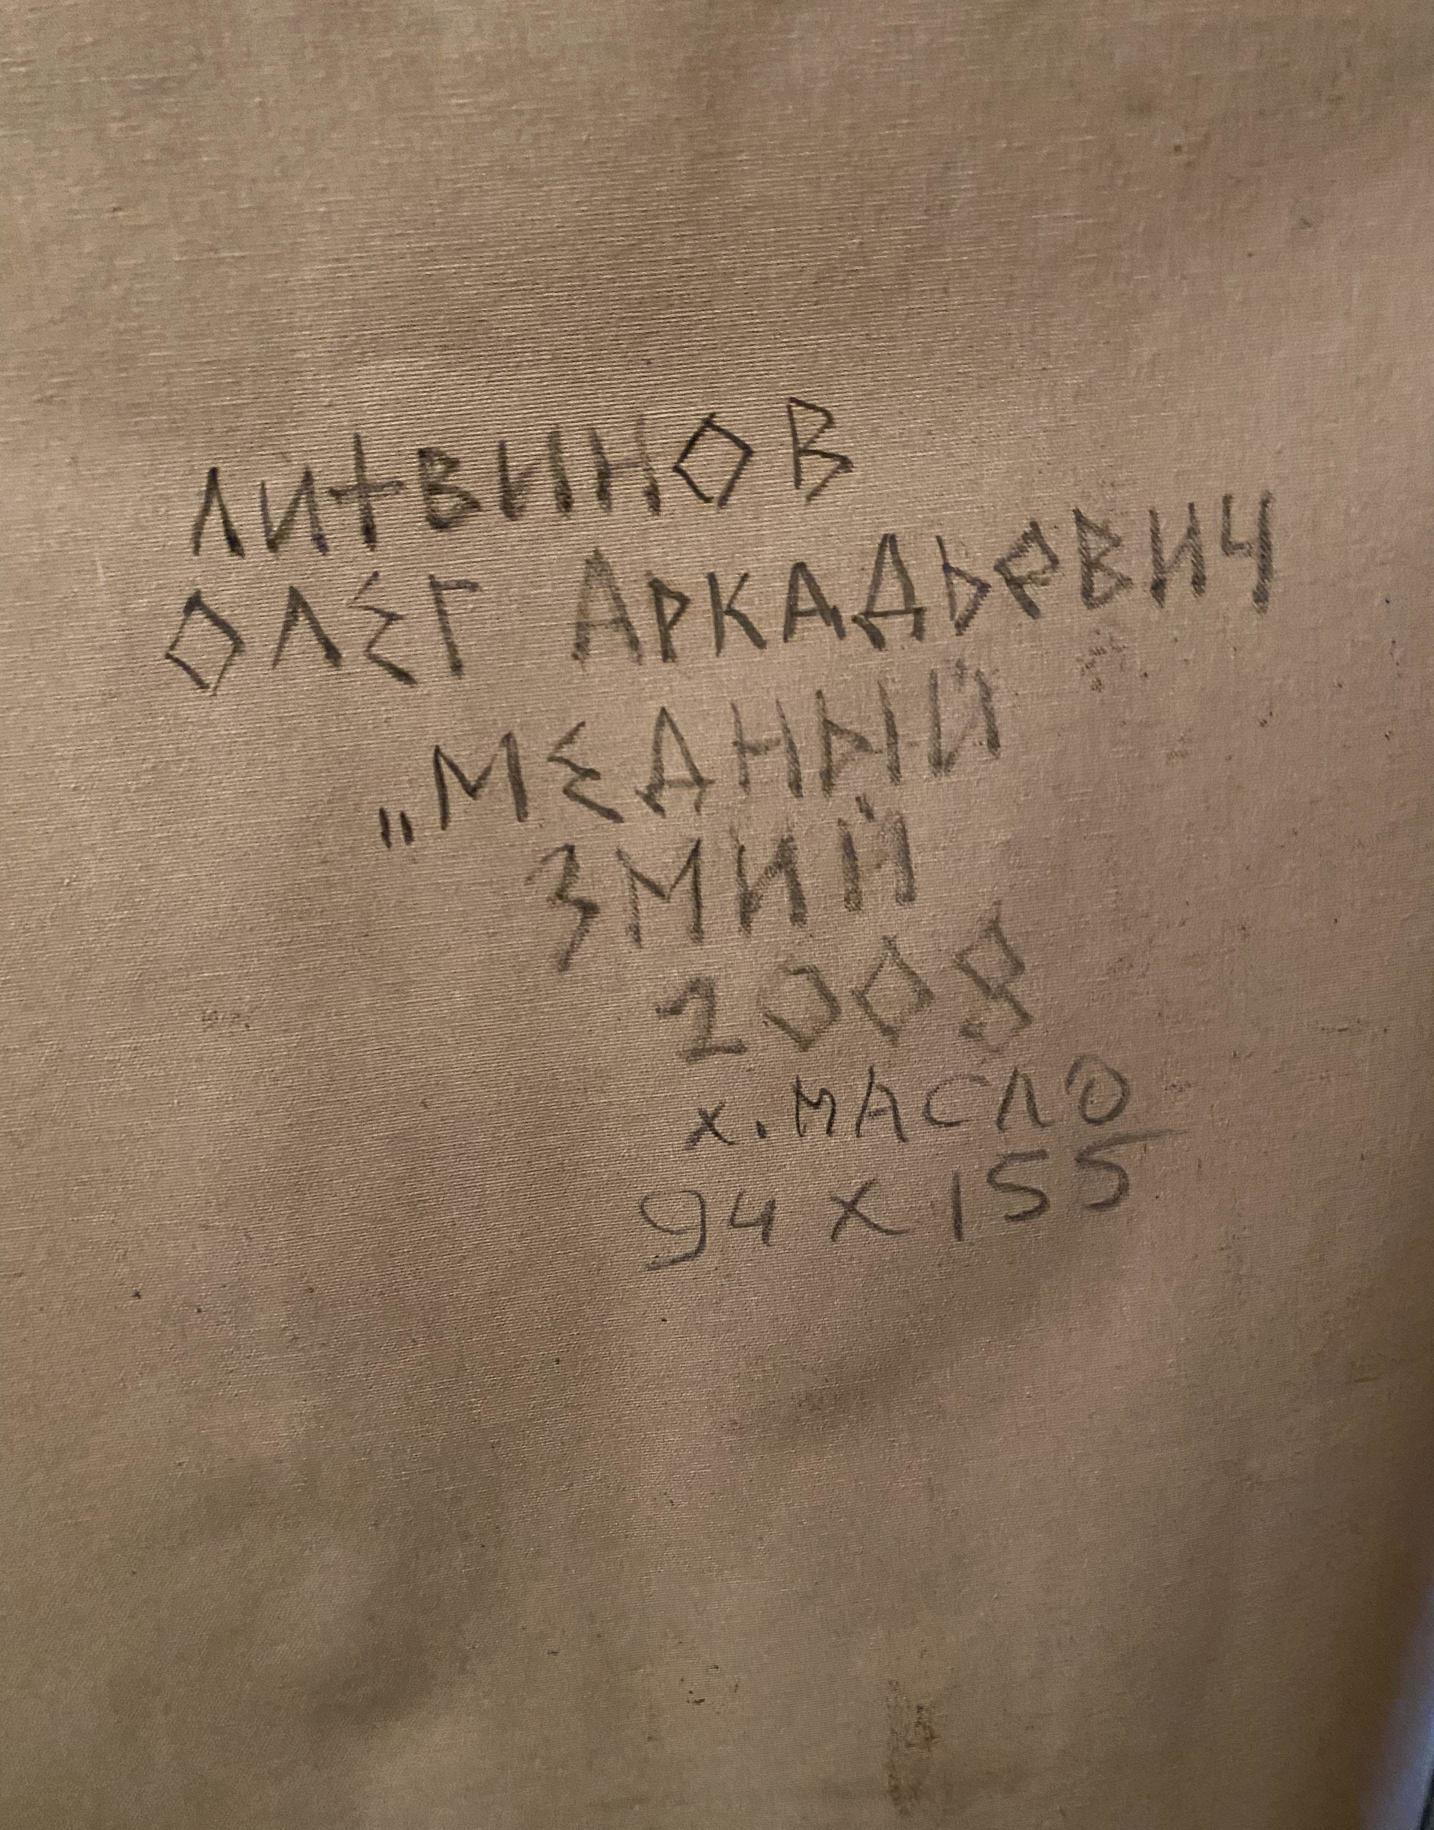 ЛИТВИНОВ
ОЛЕГ АРКАДЬЕВИЧ
„МЕДНЫЙ
ЗМИЙ
2008
х. МАСЛО
94 х 155